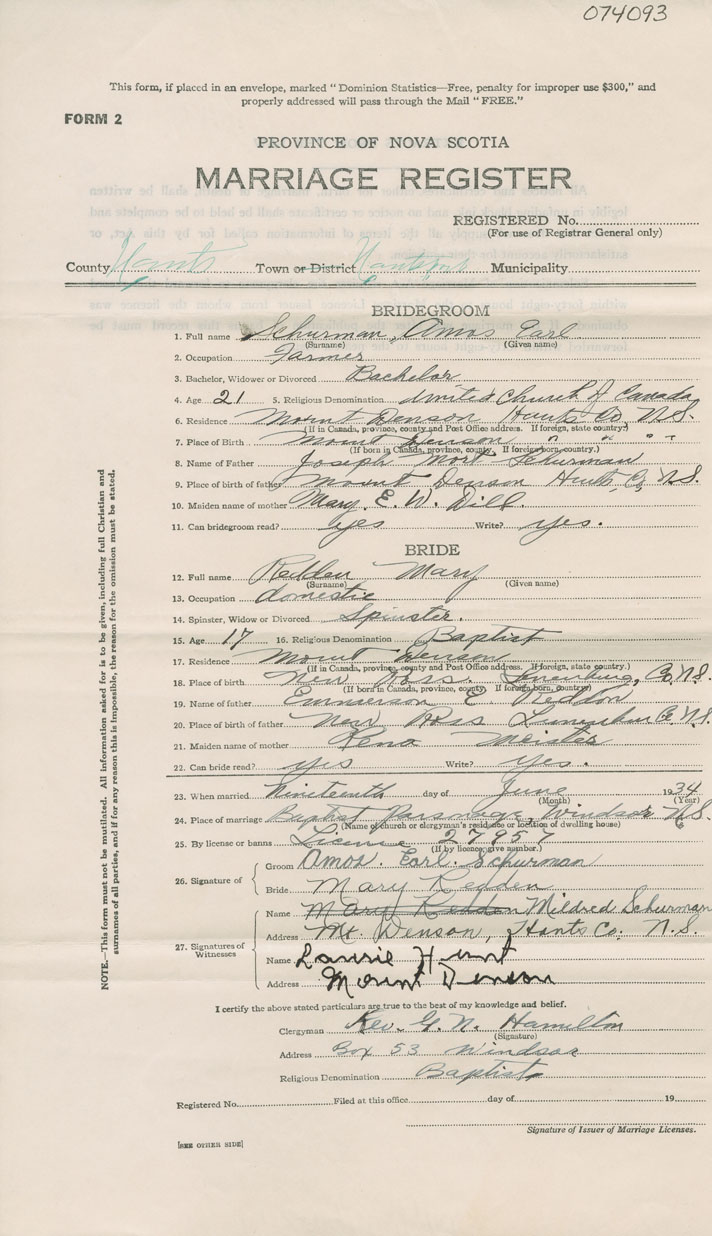 074093
This form, if placed in an envelope, marked "Dominion Statistics—Free, penalty for improper use $300," and
properly addressed will pass through the Mail "FREE."
FORM 2
PROVINCE OF NOVA SCOTIA
MARRIAGE REGISTER
REGISTERED No.
(For use of Registrar General only)
County Hants Town or District Hantsport Municipality
BRIDEGROOM
1. Full name Schurman, Amos Earl
(Surname) (Given name)
2. Occupation Farmer
3. Bachelor, Widower or Divorced Bachelor
4. Age 21 5. Religious Denomination United Church of Canada
6. Residence Mount Denson Hants Co. N.S.
(If in Canada, province, county and Post Office address. If foreign, state country.)
7. Place of Birth Mount Denson " " " "
(If born in Canada, province, county. If foreign born, country)
8. Name of Father Joseph Mort Schurman
9. Place of birth of father Mount Denson Hants Co. N.S.
10. Maiden name of mother Mary. E. W. Dill.
11. Can bridegroom read? yes Write? yes.
BRIDE
12. Full name Redden Mary
(Surname) (Given name)
13. Occupation domestic
14. Spinster, Widow or Divorced Spinster.
15. Age 17 16. Religious Denomination Baptist
17. Residence Mount Denson
(If in Canada, province, county and Post Office address. If foreign, state country.)
18. Place of birth New Ross. Lunenburg, Co. N.S.
(If born in Canada, province, county. If foreign born, country)
19. Name of father Emmerson E. Reddon
20. Place of birth of father New Ross Lunenburg Co. N.S.
21. Maiden name of mother Rena Meister
22. Can bride read? yes Write? yes.
23. When married Nineteenth day of June 1934
(Month) (Year)
24. Place of marriage Baptist Parsonage, Windsor N.S.
(Name of church or clergyman's residence or location of dwelling house)
25. By license or banns License 27957
(If by licence, give number.)
26. Signature of
Groom Amos. Earl. Schurman
Bride Mary Redden
27. Signatures of Witnesses
Name Mary Reddon Mildred Schurman
Address Mt. Denson, Hants Co. N.S.
Name Laurie Hunt
Address Mount Denson
I certify the above stated particulars are true to the best of my knowledge and belief.
Clergyman Rev. G. N. Hamilton
(Signature)
Address Box 53 Windsor
Religious Denomination Baptist
Registered No. Filed at this office day of 19
Signature of Issuer of Marriage Licenses.
[SEE OTHER SIDE]
NOTE.—This form must not be mutilated. All information asked for is to be given, including full Christian and
surnames of all parties, and if for any reason this is impossible, the reason for the omission must be stated.